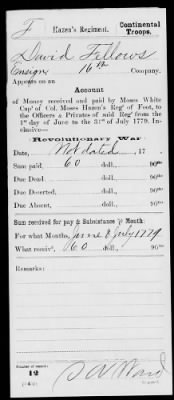 F
Hazen's Regiment.
Continental
Troops.
David Fellows
Ensign, 16th Company.
Appears on an
Account
of Money received and paid by Moses White
Capt of Col. Moses Hazen's Regt of Foot, to
the Officers & Privates of said Regt from the
1st day of June to the 31st of July 1779. In-
clusive—
Revolutionary War
Date, Not dated, 17
Sum paid, 60 doll., 90ths
Due Dead, doll., 90ths
Due Deserted, doll., 90ths
Due Absent, doll., 90ths
Sum received for pay & Subsistance per Month:
For what Months, June & July 1779
What receivd, 60 doll., 90ths
Remarks:
Number of record:
12